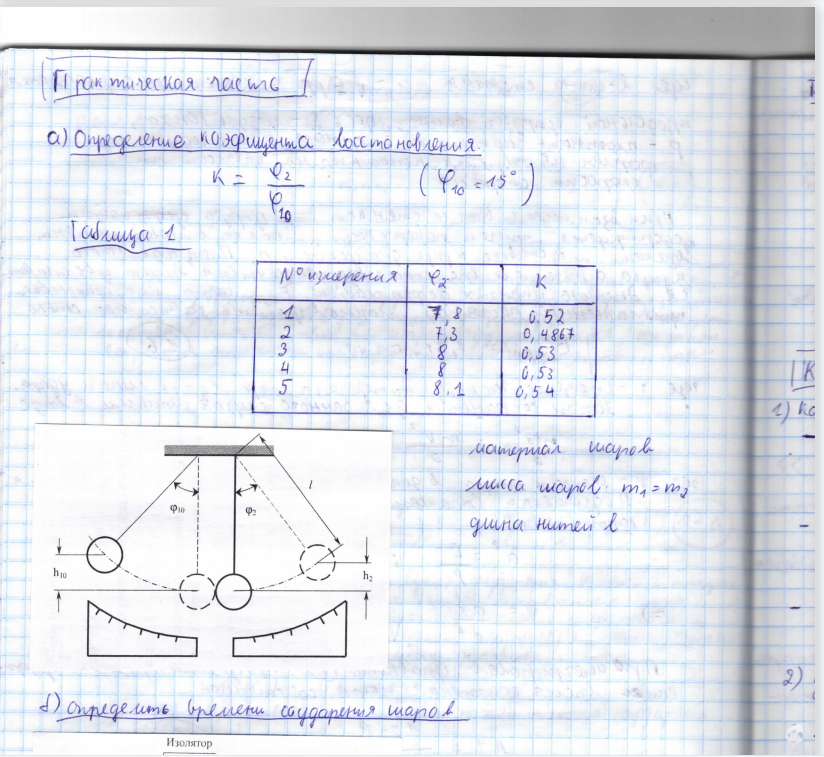 Практическая часть
а) Определение коэфицента восстановления.
K = φ₂ / φ₁₀ (φ₁₀ = 15°)
Таблица 1
№ измерения φ₂ K
1 7,8 0,52
2 7,3 0,4867
3 8 0,53
4 8 0,53
5 8,1 0,54
материал шаров
масса шаров m₁ = m₂
длина нитей l
l
φ₁₀ φ₂
h₁₀ h₂
б) определить времени соударения шаров
Изолятор
1)
2)